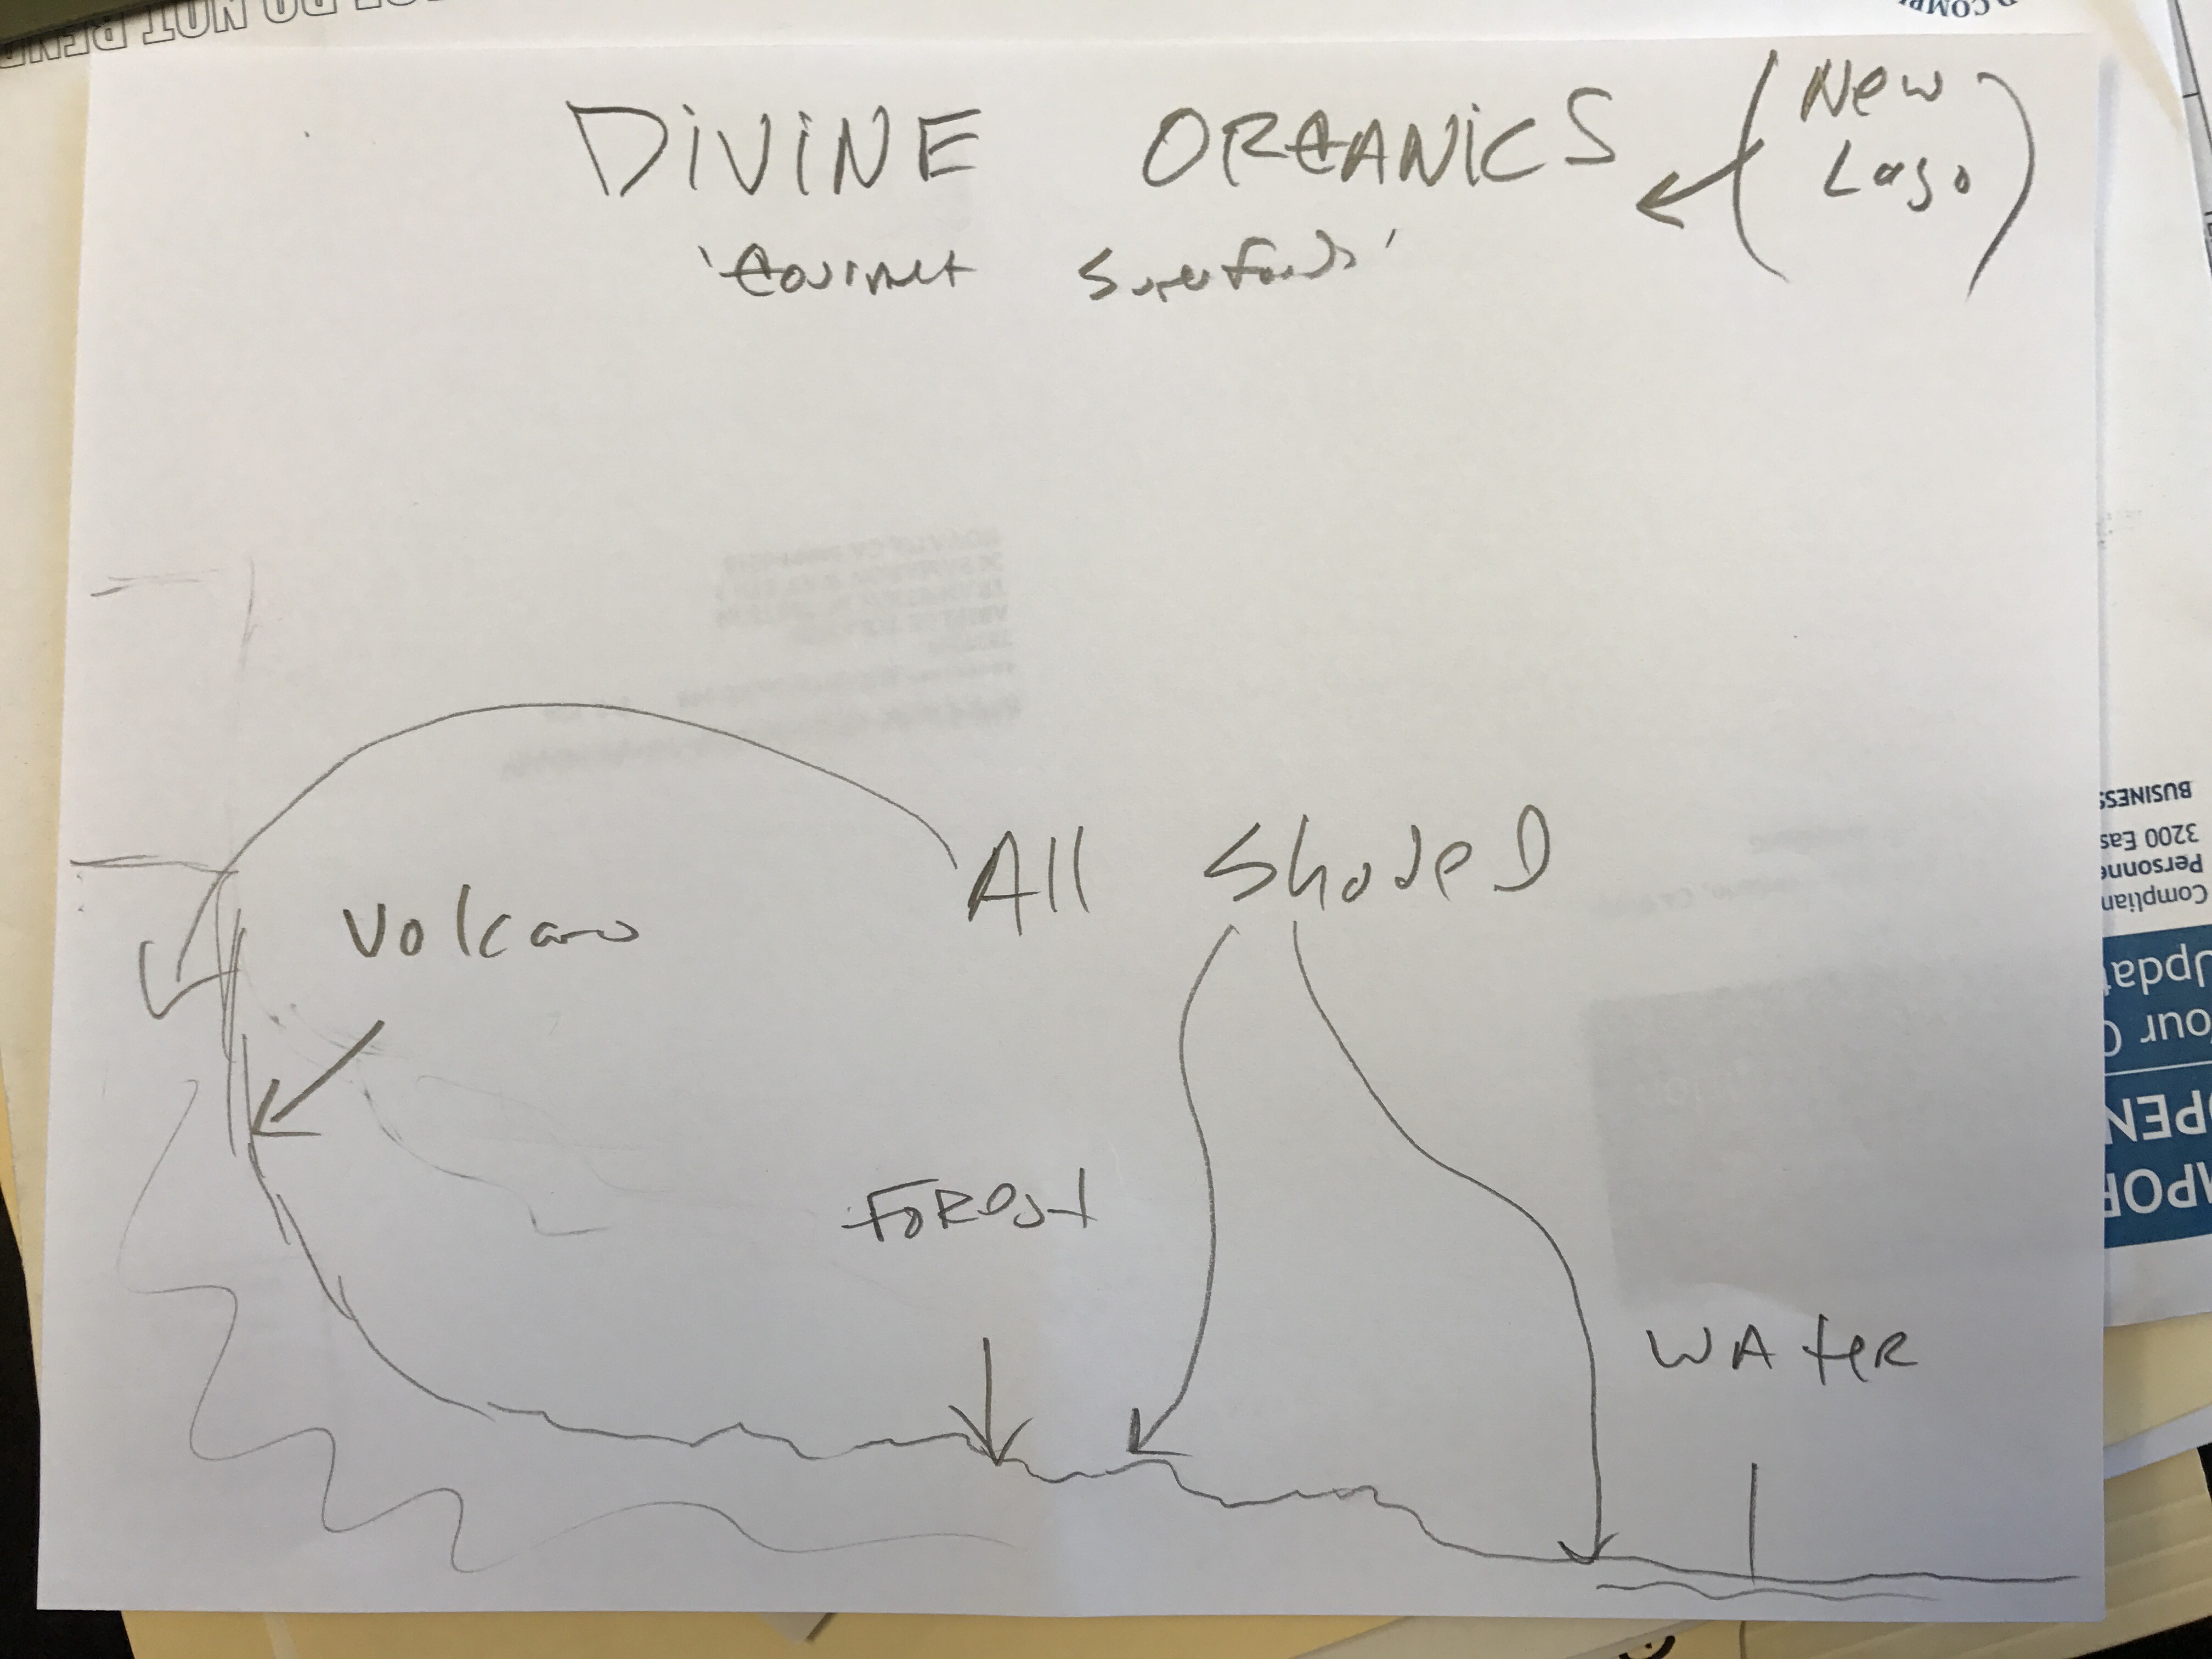 DO NOT BEND
D COMPL
DiViNE ORGANiCS
(New Logo)
'Gourmet Superfoods'
BUSINESS
3200 Eas
Personne
Complian
All ShadeD
Volcano
Updat
Your
OPEN
MPOR
FOREst
WAteR